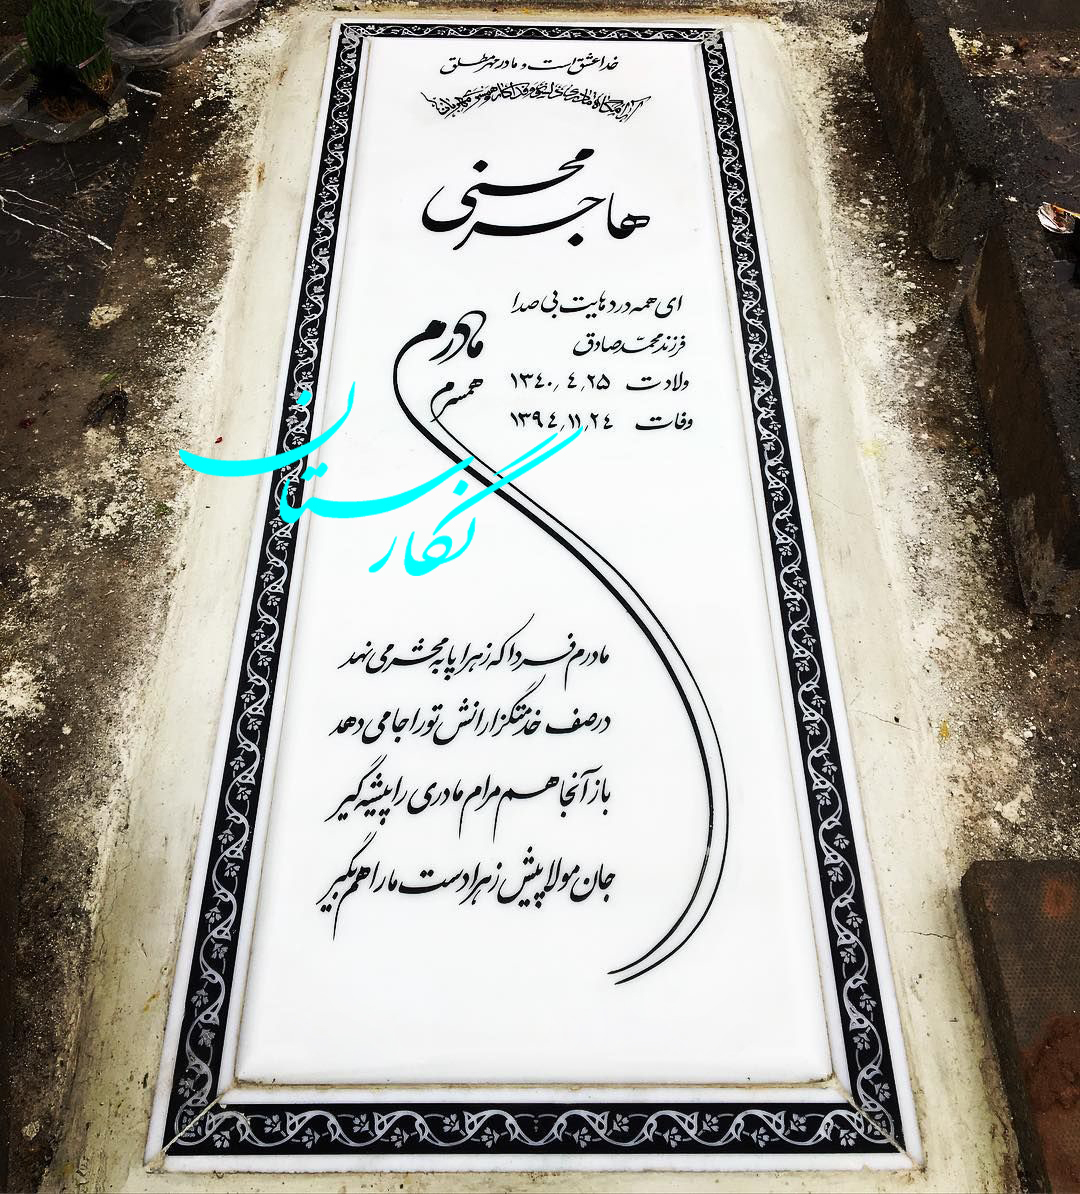 خدا عشق است و مادر مهر مطلق
آرامگاه مادری دلسوز و فداکار همسری مهربان
هاجر محسنی
ای همه دردهایت بی صدا
فرزند محمّد صادق
ولادت ۱۳٤۰٫٤٫۲۵
وفات ۱۳۹٤٫۱۱٫۲٤
مادرم
همسرم
نگارستان
مادرم فردا که زهرا پا به محشر می نهد
در صف خدمتگزارانش تو را جا می دهد
باز آنجا هم مرام مادری را پیشه گیر
جان مولا پیش زهرا دست ما را هم بگیر